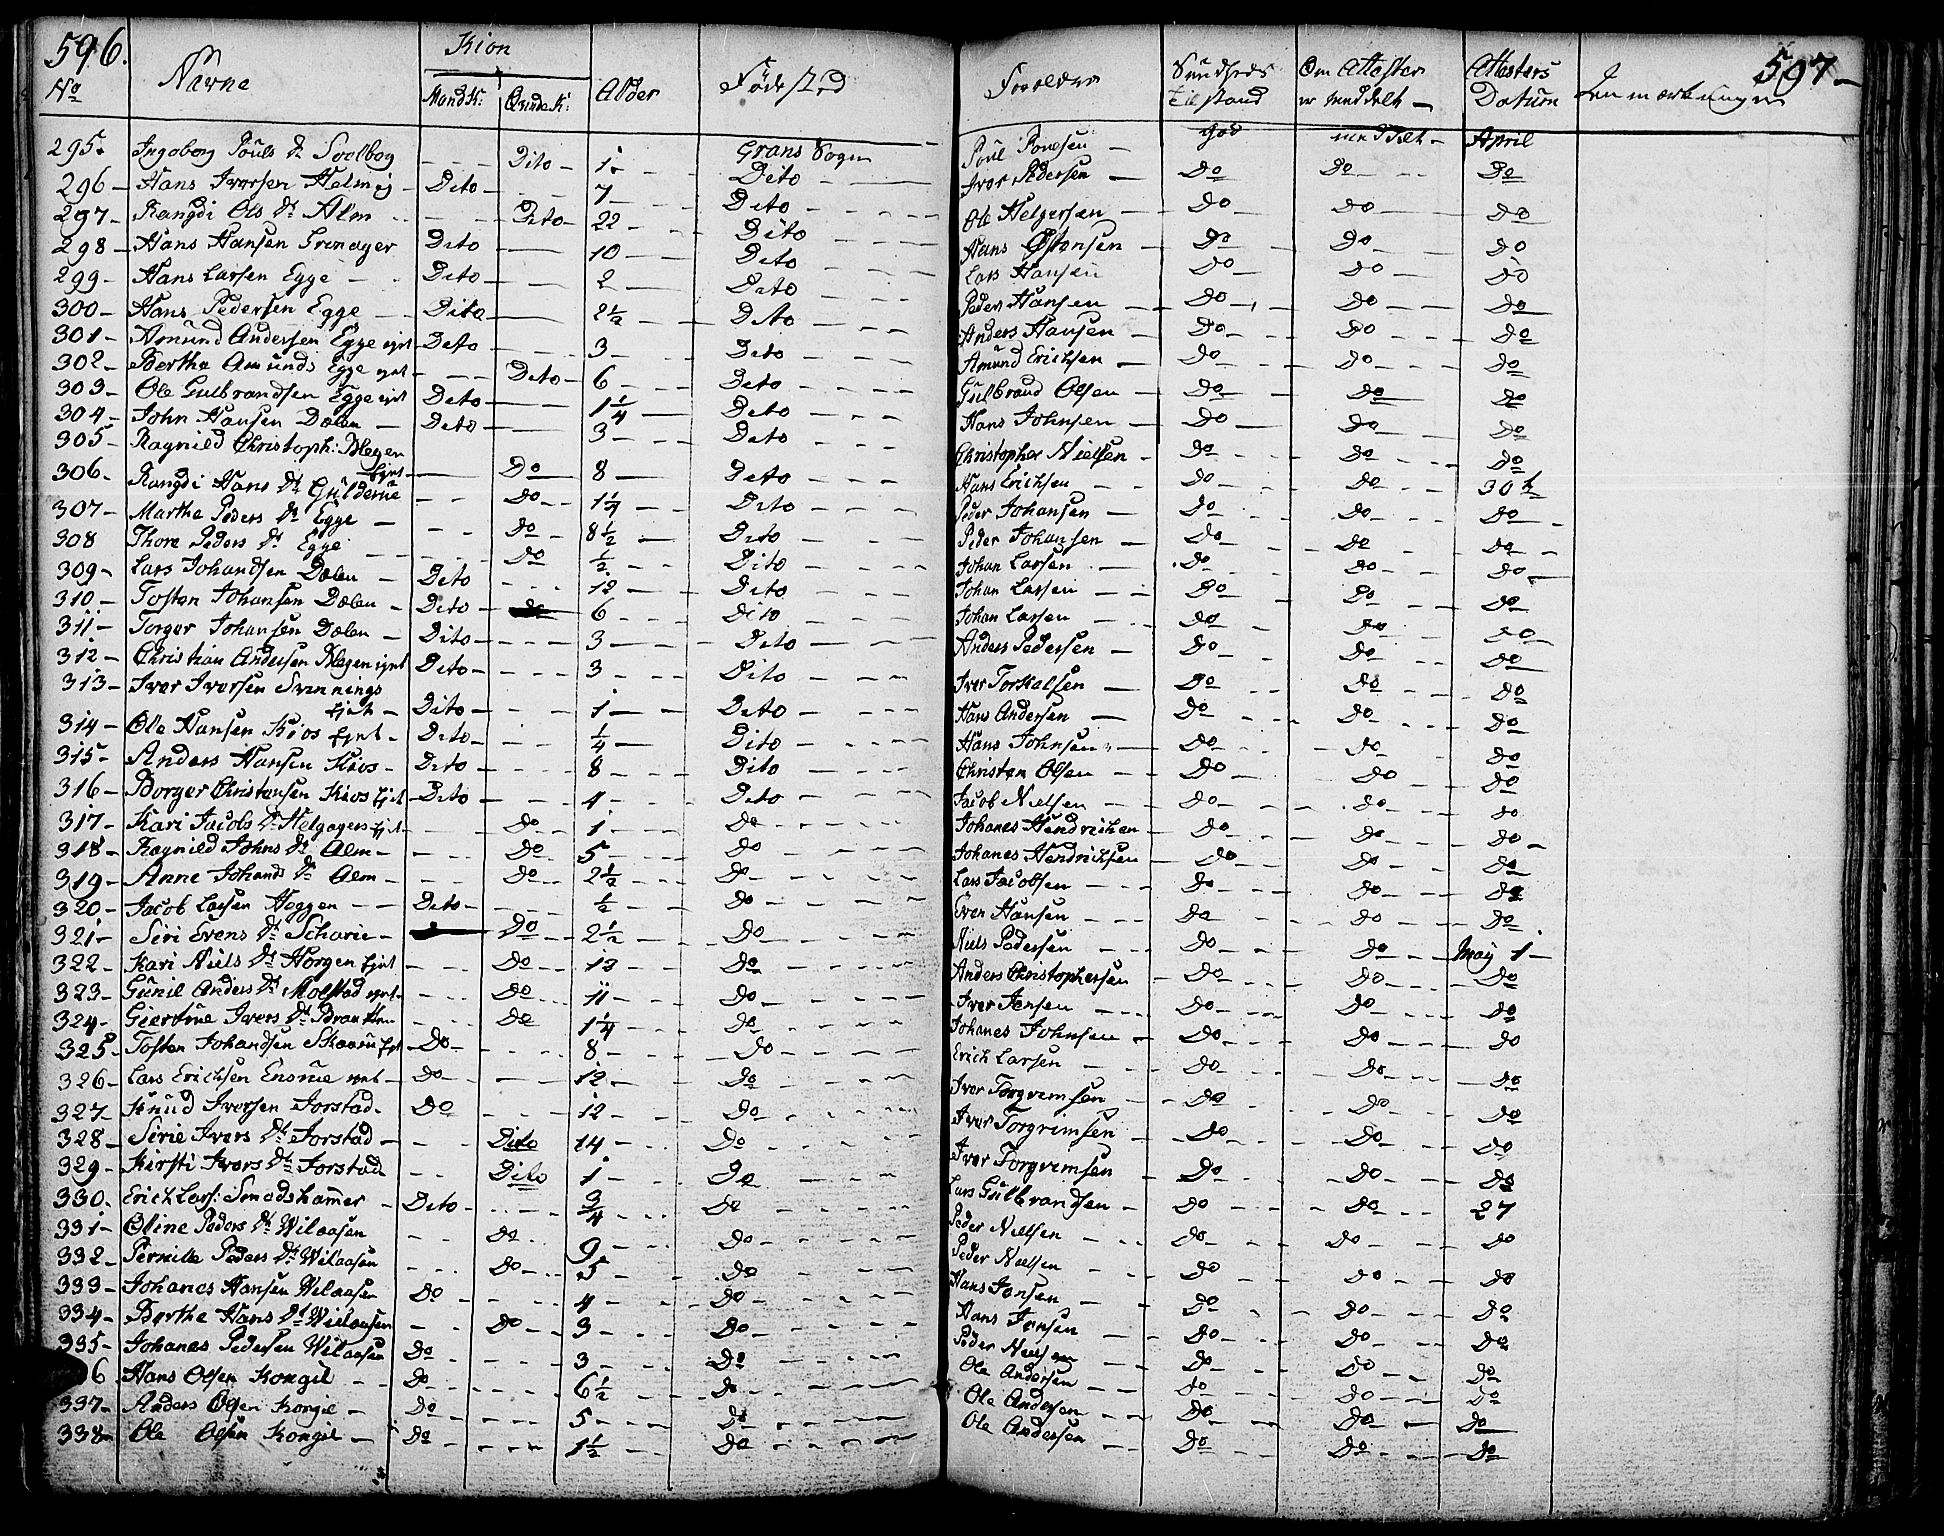 596.
No
Navne
Kion
Mandk:
Qvindek:
Alder
Födested
Forældre
Sundheds Tilstand
Om Attester er meddelt
Attesters Datum
597
295. Ingeborg Pouls Dr Soelbog Dito 1 Grans Sogn Poul Poulsen god meddelt April
296 Hans Iversen Helmej Dito 7 Dito Iver Pedersen Do Do Do
297 Rangdi Ols Dr Alm Dito 22 Dito Ole Helgersen Do Do Do
298 Hans Hansen Grinager Dito 10 Dito Hans Østensen Do Do Do
299 Hans Larsen Egge Dito 2 Dito Lars Hansen Do Do Do
300 Hans Pedersen Egge Dito 2½ Dito Peder Hansen Do Do Do
301 Amund Andersen Egge ejet Dito 3 Dito Anders Hansen Do Do Do
302 Berthe Amunds Egge ejet Dito 6 Dito Amund Erichsen Do Do Do
303 Ole Gulbrandsen Egge ejet Dito 1¼ Dito Gulbrand Olsen Do Do Do
304 John Hansen Dælen Dito 3 Dito Hans Johnsen Do Do Do
305 Ragnild Christoph: Blegen Ejet Do 8 Dito Christopher Nielsen Do Do Do
306 Rangdi Hans Dr Gulderne Do 1¼ Dito Hans Erichsen Do Do 30t
307 Marthe Peders Dr Egge Do 8½ Dito Peder Johansen Do Do Do
308 Thore Peders Dr Egge Do ½ Dito Peder Johansen Do Do Do
309 Lars Johandsen Dælen Dito 12 Dito Johan Larsen Do Do Do
310 Tosten Johansen Dælen Dito 6 Dito Johan Larsen Do Do Do
311 Torger Johansen Dælen Dito 3 Dito Johan Larsen Do Do Do
312 Christian Andersen Blegen ejet Dito 3 Dito Anders Pedersen Do Do Do
313 Iver Iversen Svinnings Ejet Dito 1 Dito Iver Torkalsen Do Do Do
314 Ole Hansen Kios Ejet Dito ¼ Dito Hans Andersen Do Do Do
315 Anders Hansen Kios Dito 8 Dito Hans Johnsen Do Do Do
316 Borger Christensen Kios Ejet Dito 4 Dito Christen Olsen Do Do Do
317 Kari Jacobs Dr Helgagers Ejet Do 1 Do Jacob Nielsen Do Do Do
318 Ragnild Johns Dr Alm Do 5 Do Johanes Hendrichsen Do Do Do
319 Anne Johands Dr Alm Do 2½ Do Johanes Hendrichsen Do Do Do
320 Jacob Larsen Heggen Dito ½ Do Lars Jacobsen Do Do Do
321 Siri Evens Dr Scharie Do 2½ Do Even Hansen Do Do Do
322 Kari Niels Dr Horgen Ejet Do 12 Do Niels Pedersen Do Do May 1
323 Gunil Anders Dr Molstad ejet Do 11 Do Anders Christophersen Do Do Do
324 Giertrue Ivers Dr Do 1¼ Do Iver Jensen Do Do Do
325 Tosten Johandsen Skaarin Ejet Do 8 Do Johanes Johnsen Do Do Do
326 Lars Erichsen Ensrue ejet Do 12 Do Erich Larsen Do Do Do
327 Knud Iversen Jorstad Do 12 Do Iver Torgrimsen Do Do Do
328 Sirie Ivers Dr Jorstad Dito 14 Do Iver Torgrimsen Do Do Do
329 Kirsti Ivers Dr Jorstad Dito 1 Do Iver Torgrimsen Do Do Do
330. Erich Lars: Smedshammer Dito ¾ Do Lars Gulbrandsen Do Do 27
331 Oline Peders Dr Wilaasen Do 9 Do Peder Nielsen Do Do Do
332 Pernille Peders Dr Wilaasen Do 5 Do Peder Nielsen Do Do Do
333 Johanes Hansen Wilaasen Do 4 Do Hans Jansen Do Do Do
334 Berthe Hans Dr Wilaasen Do 3 Do Hans Jansen Do Do Do
335 Johanes Pedersen Wilaasen Do 3 Do Peder Nielsen Do Do Do
6 Hans Olsen Kongil Do 6½ Do Ole Andersen Do Do Do
337 Anders Olsen Kongil Do 5 Do Ole Andersen Do Do Do
338 Ole Olsen Kongil Do 1½ Do Ole Andersen Do Do Do